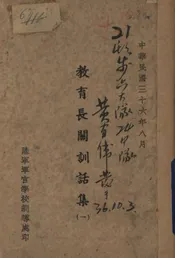 中華民國三十六年八月
21期步六大隊五中隊
黃
教育長關訓話集(一)
36.10.3.
陸軍軍官學校訓導處印